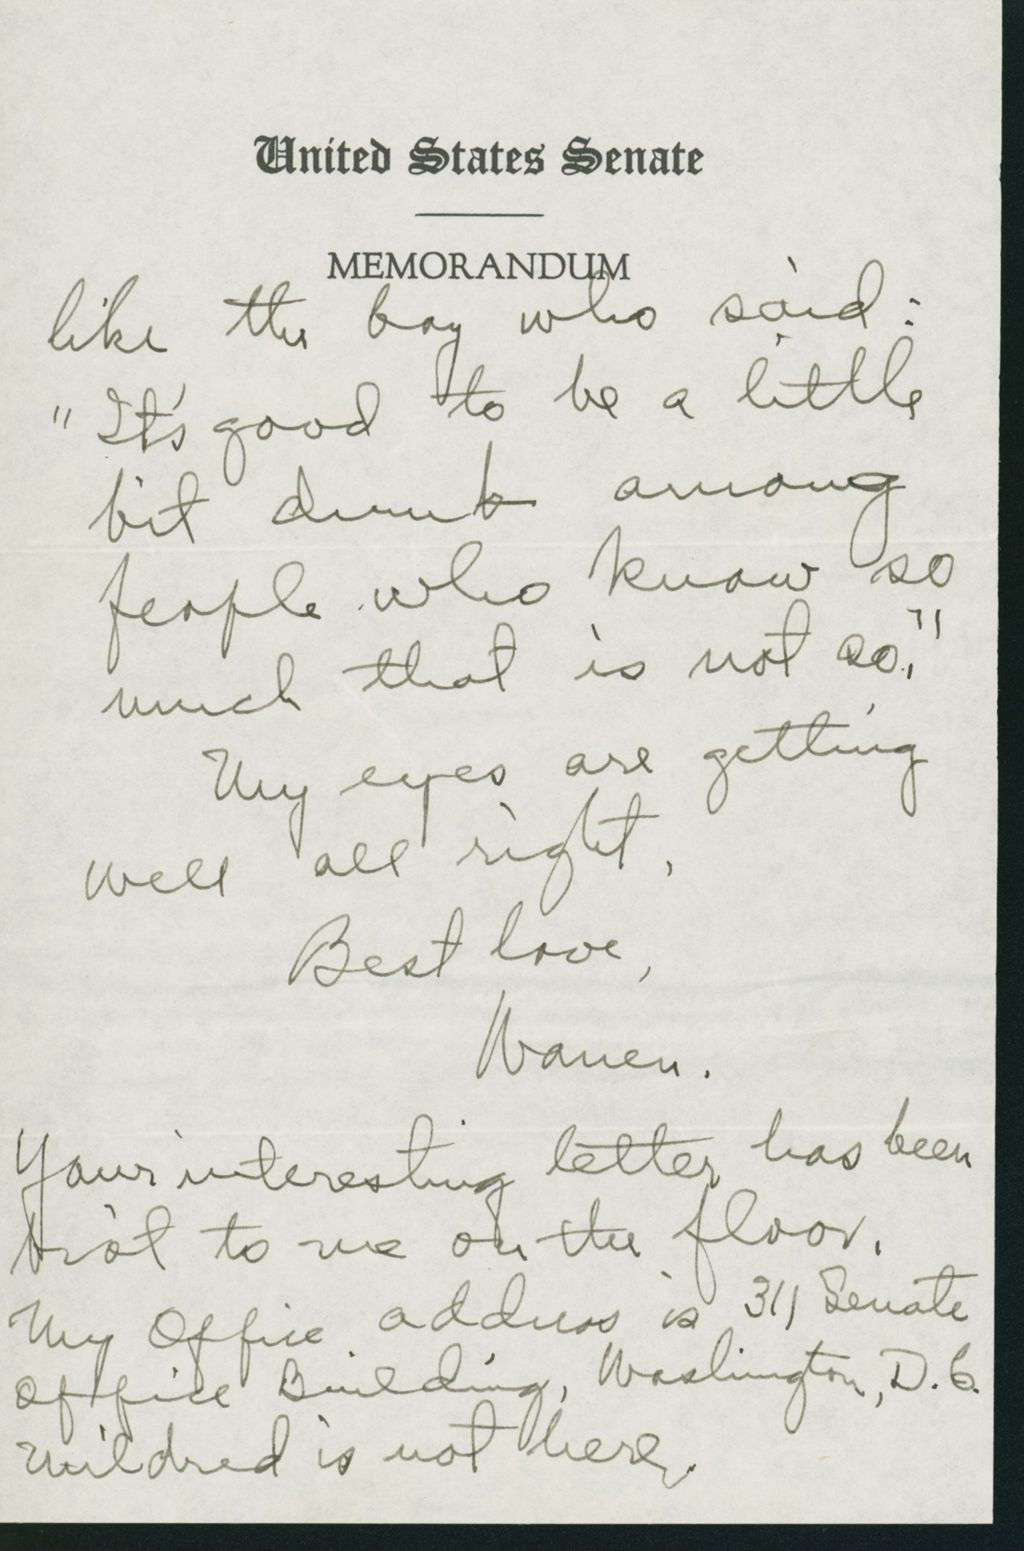 United States Senate
MEMORANDUM
like the boy who said:
"It's good to be a little
bit drunk among
people who know so
much that is not so."
My eyes are getting
well all right,
Best love,
Warren.
Your interesting letter has been
bro't to me on the floor.
My Office address is 311 Senate
Office Building, Washington, D.C.
Mildred is not here.